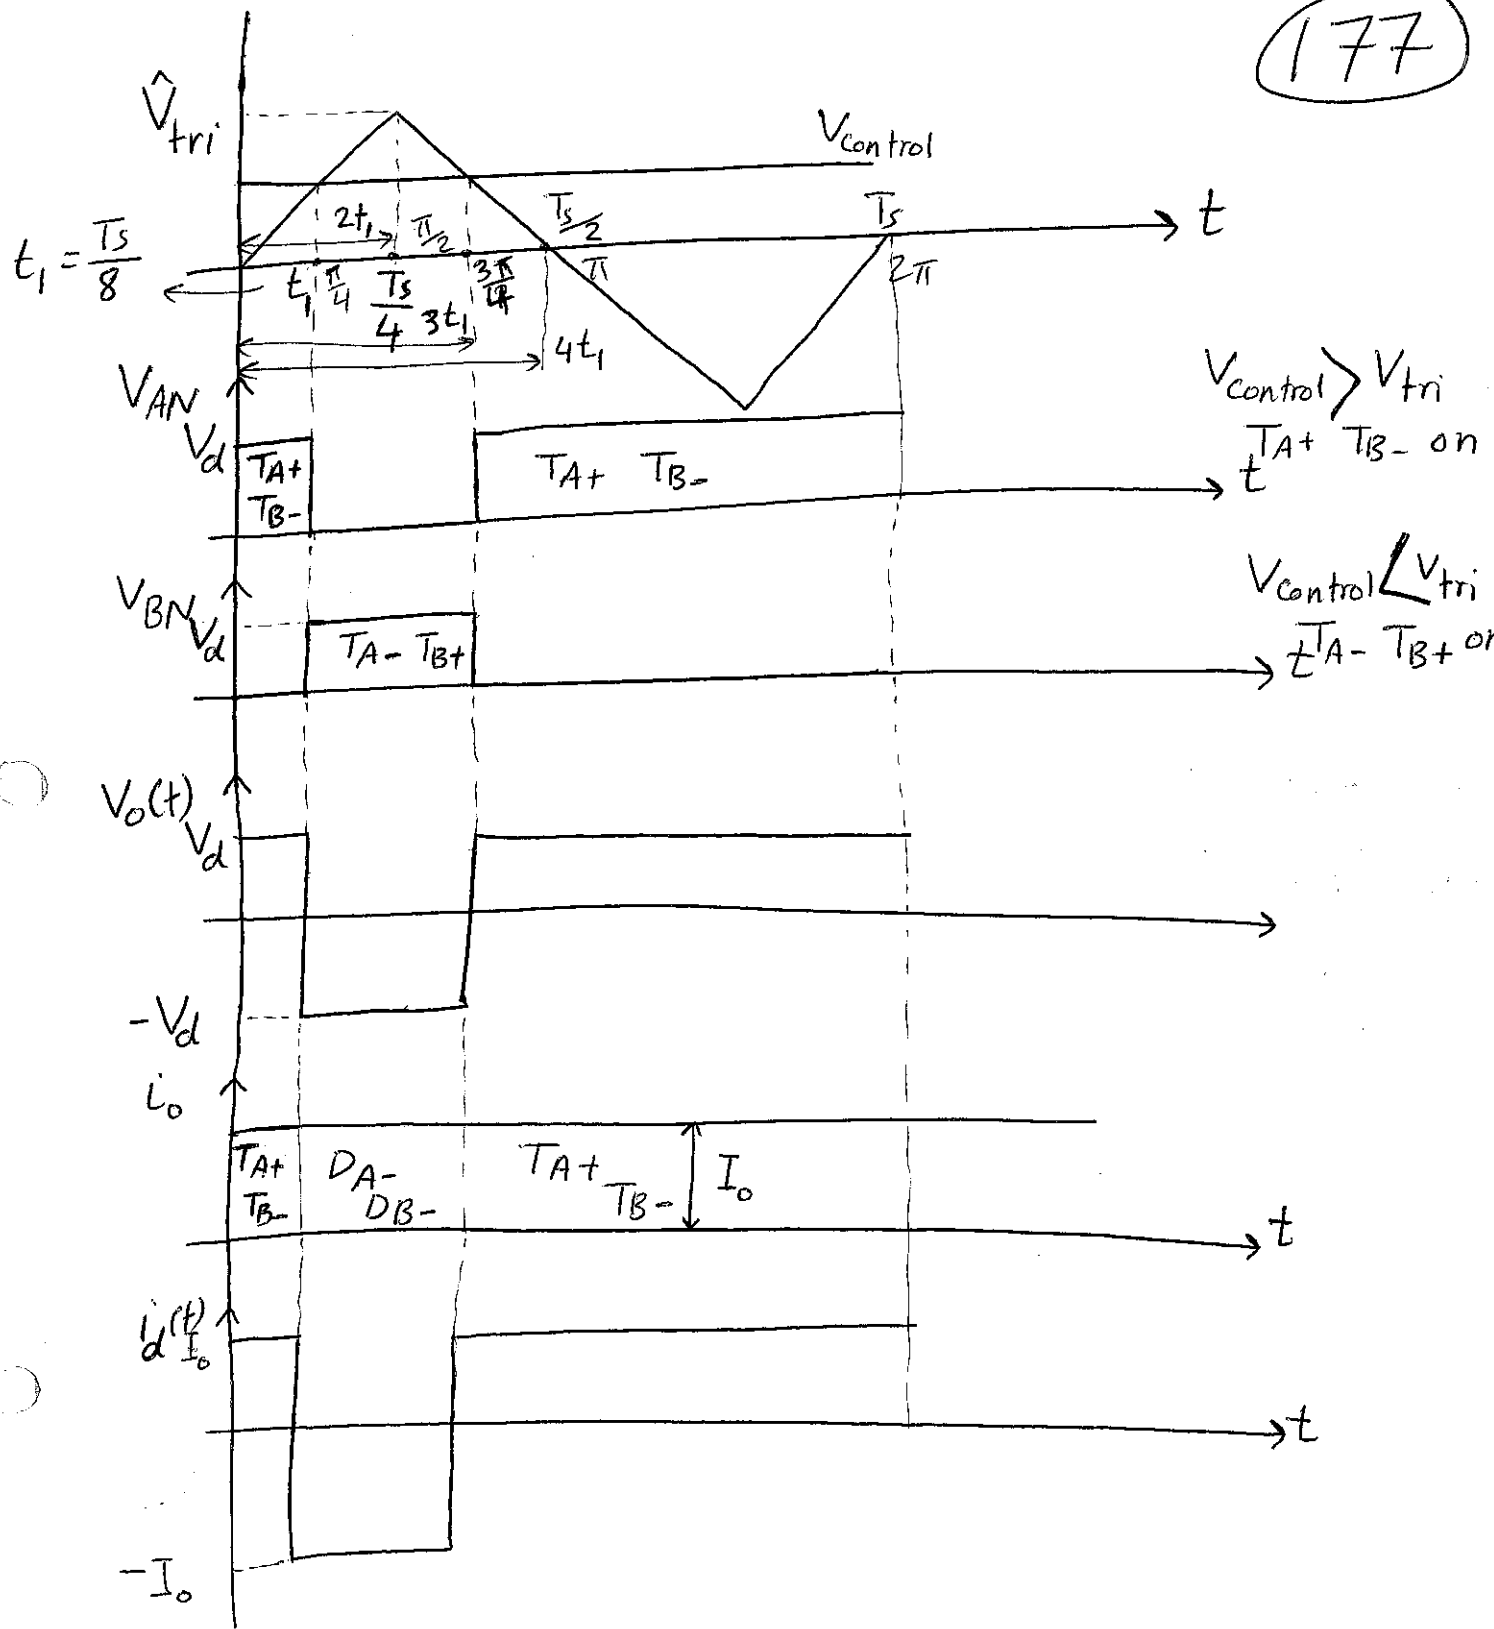 177
V̂tri
Vcontrol
t₁ = Ts/8
2t₁
π/2
Ts/2
Ts
t
t₁ π/4 Ts/4 3π/4 π 2π
3t₁
4t₁
VAN
Vd
TA+
TB-
TA+ TB-
t
Vcontrol > Vtri
TA+ TB- on
VBN
Vd
TA- TB+
t
Vcontrol < Vtri
TA- TB+ on
Vo(t)
Vd
-Vd
io
TA+
TB-
DA-
DB-
TA+
TB-
Io
t
id(t)
Io
t
-Io